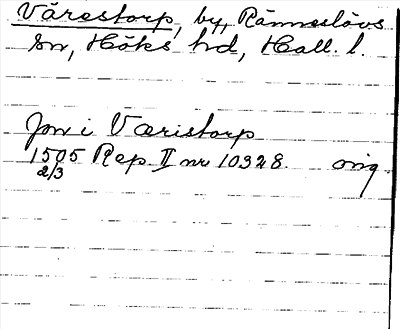 Vårestorp, by, Ränneslövs
sn, Höks hd, Hall. l.
Jon i Væristorp
1505 Rep. II nr 10328. orig
2/3